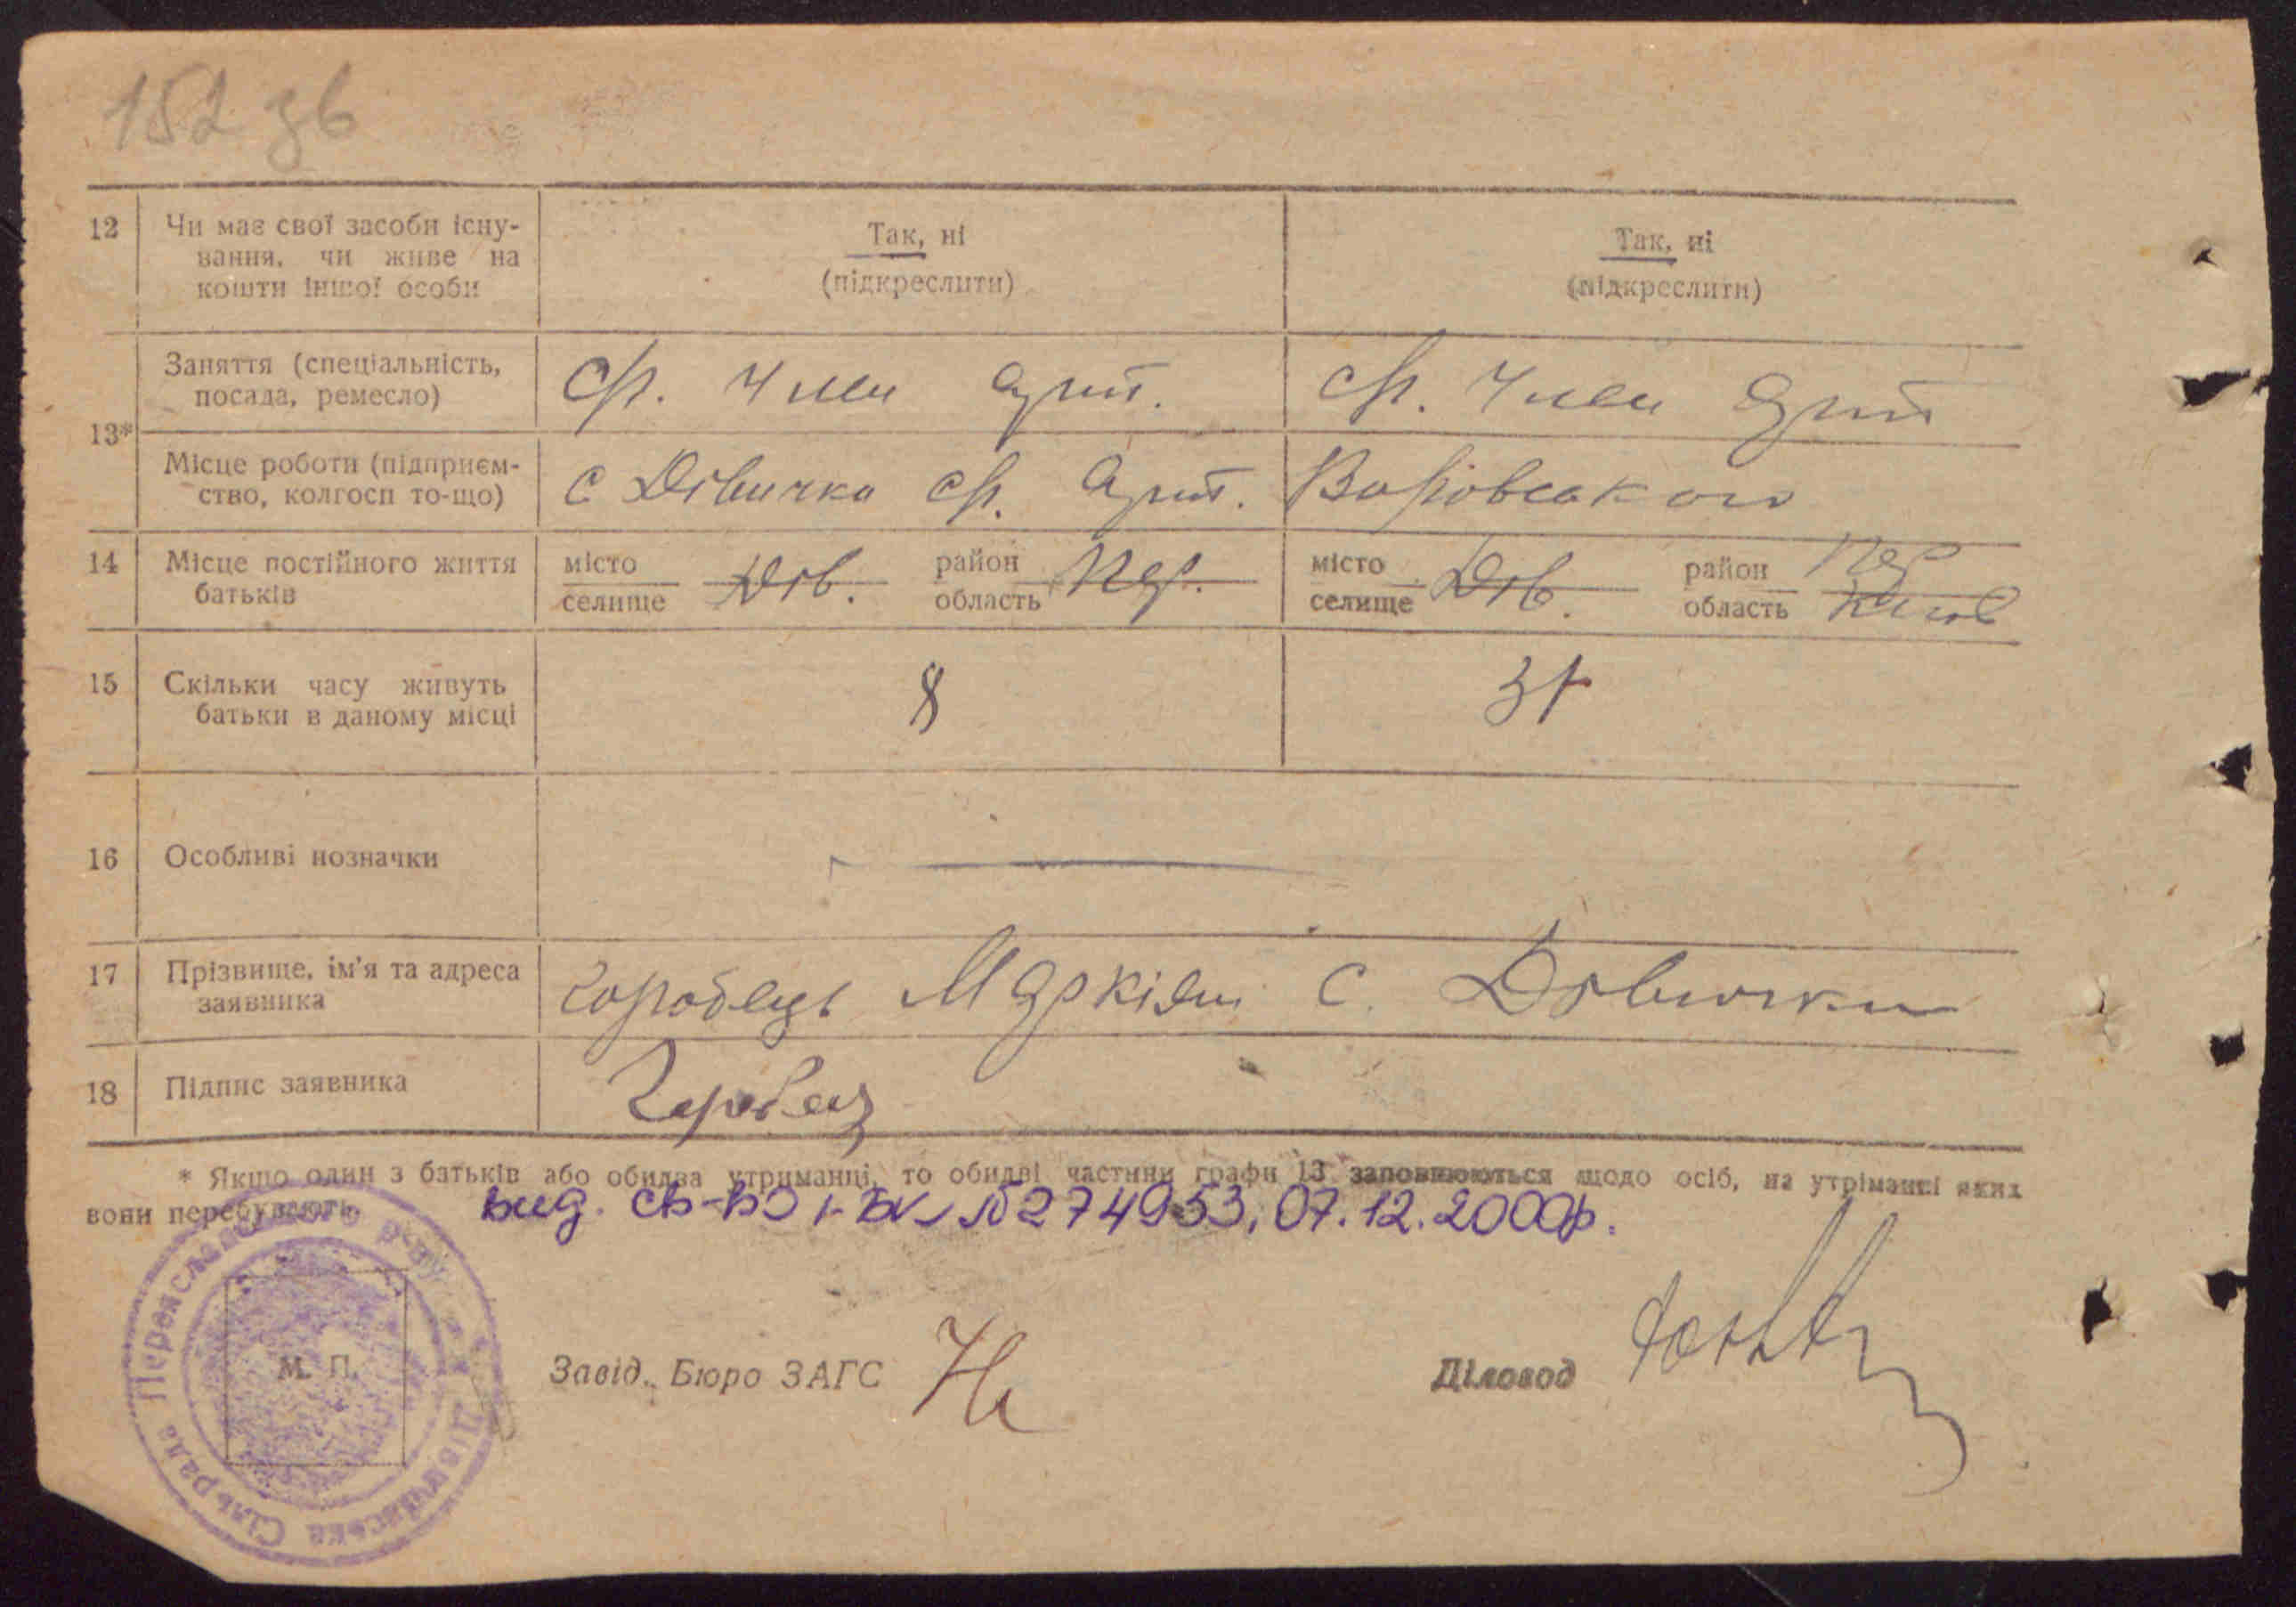 152 зв
12 Чи має свої засоби існу-
вання, чи живе на
кошти іншої особи
Так, ні
(підкреслити)
Так, ні
(підкреслити)
13*
Заняття (спеціальність,
посада, ремесло)
Ср. Член Арт.
Ср. Член Арт
Місце роботи (підприєм-
ство, колгосп то-що)
с Дівичка ср. Арт. Воровського
14 Місце постійного життя
батьків
місто
селище
Дів.
район
область
Пер.
місто
селище
Дів.
район
область
Пер
Київ
15 Скільки часу живуть
батьки в даному місці
8
16 Особливі позначки
17 Прізвище, ім'я та адреса
заявника
Горобець Маркіян с. Дівички
18 Підпис заявника
Горобец
* Якщо один з батьків або обидва утриманці, то обидві частини графи 13 заповнюються щодо осіб, на утріманні яких
вони перебувають.
вид. св-во І-БК №274953, 07.12.2000р.
Переяславського р-ну
Дівичківська Сільрада
М. П.
Завід. Бюро ЗАГС
Діловод